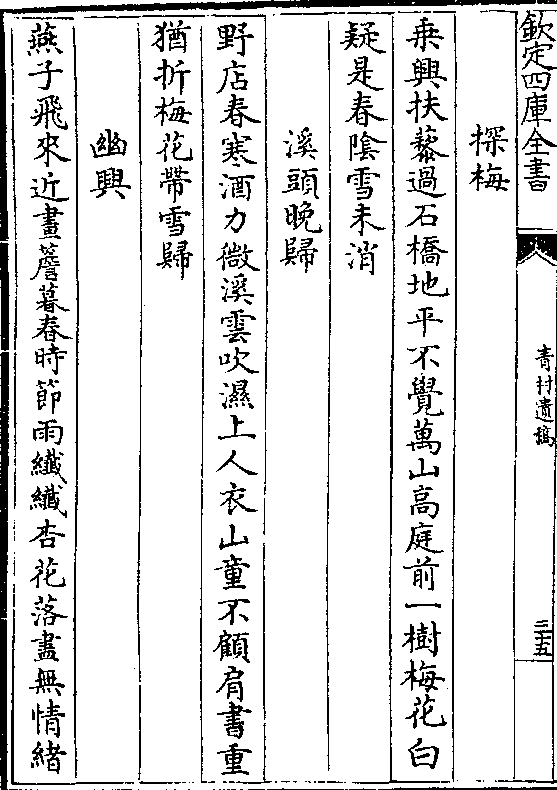 欽定四庫全書
青村遺稿
三十五
探梅
乗興扶藜過石橋地平不覺萬山高庭前一樹梅花白
疑是春隂雪未消
溪頭晚歸
野店春寒酒力微溪雲吹濕上人衣山童不顧肩書重
猶折梅花帶雪歸
幽興
燕子飛來近畫簷暮春時節雨纖纖杏花落盡無情緒